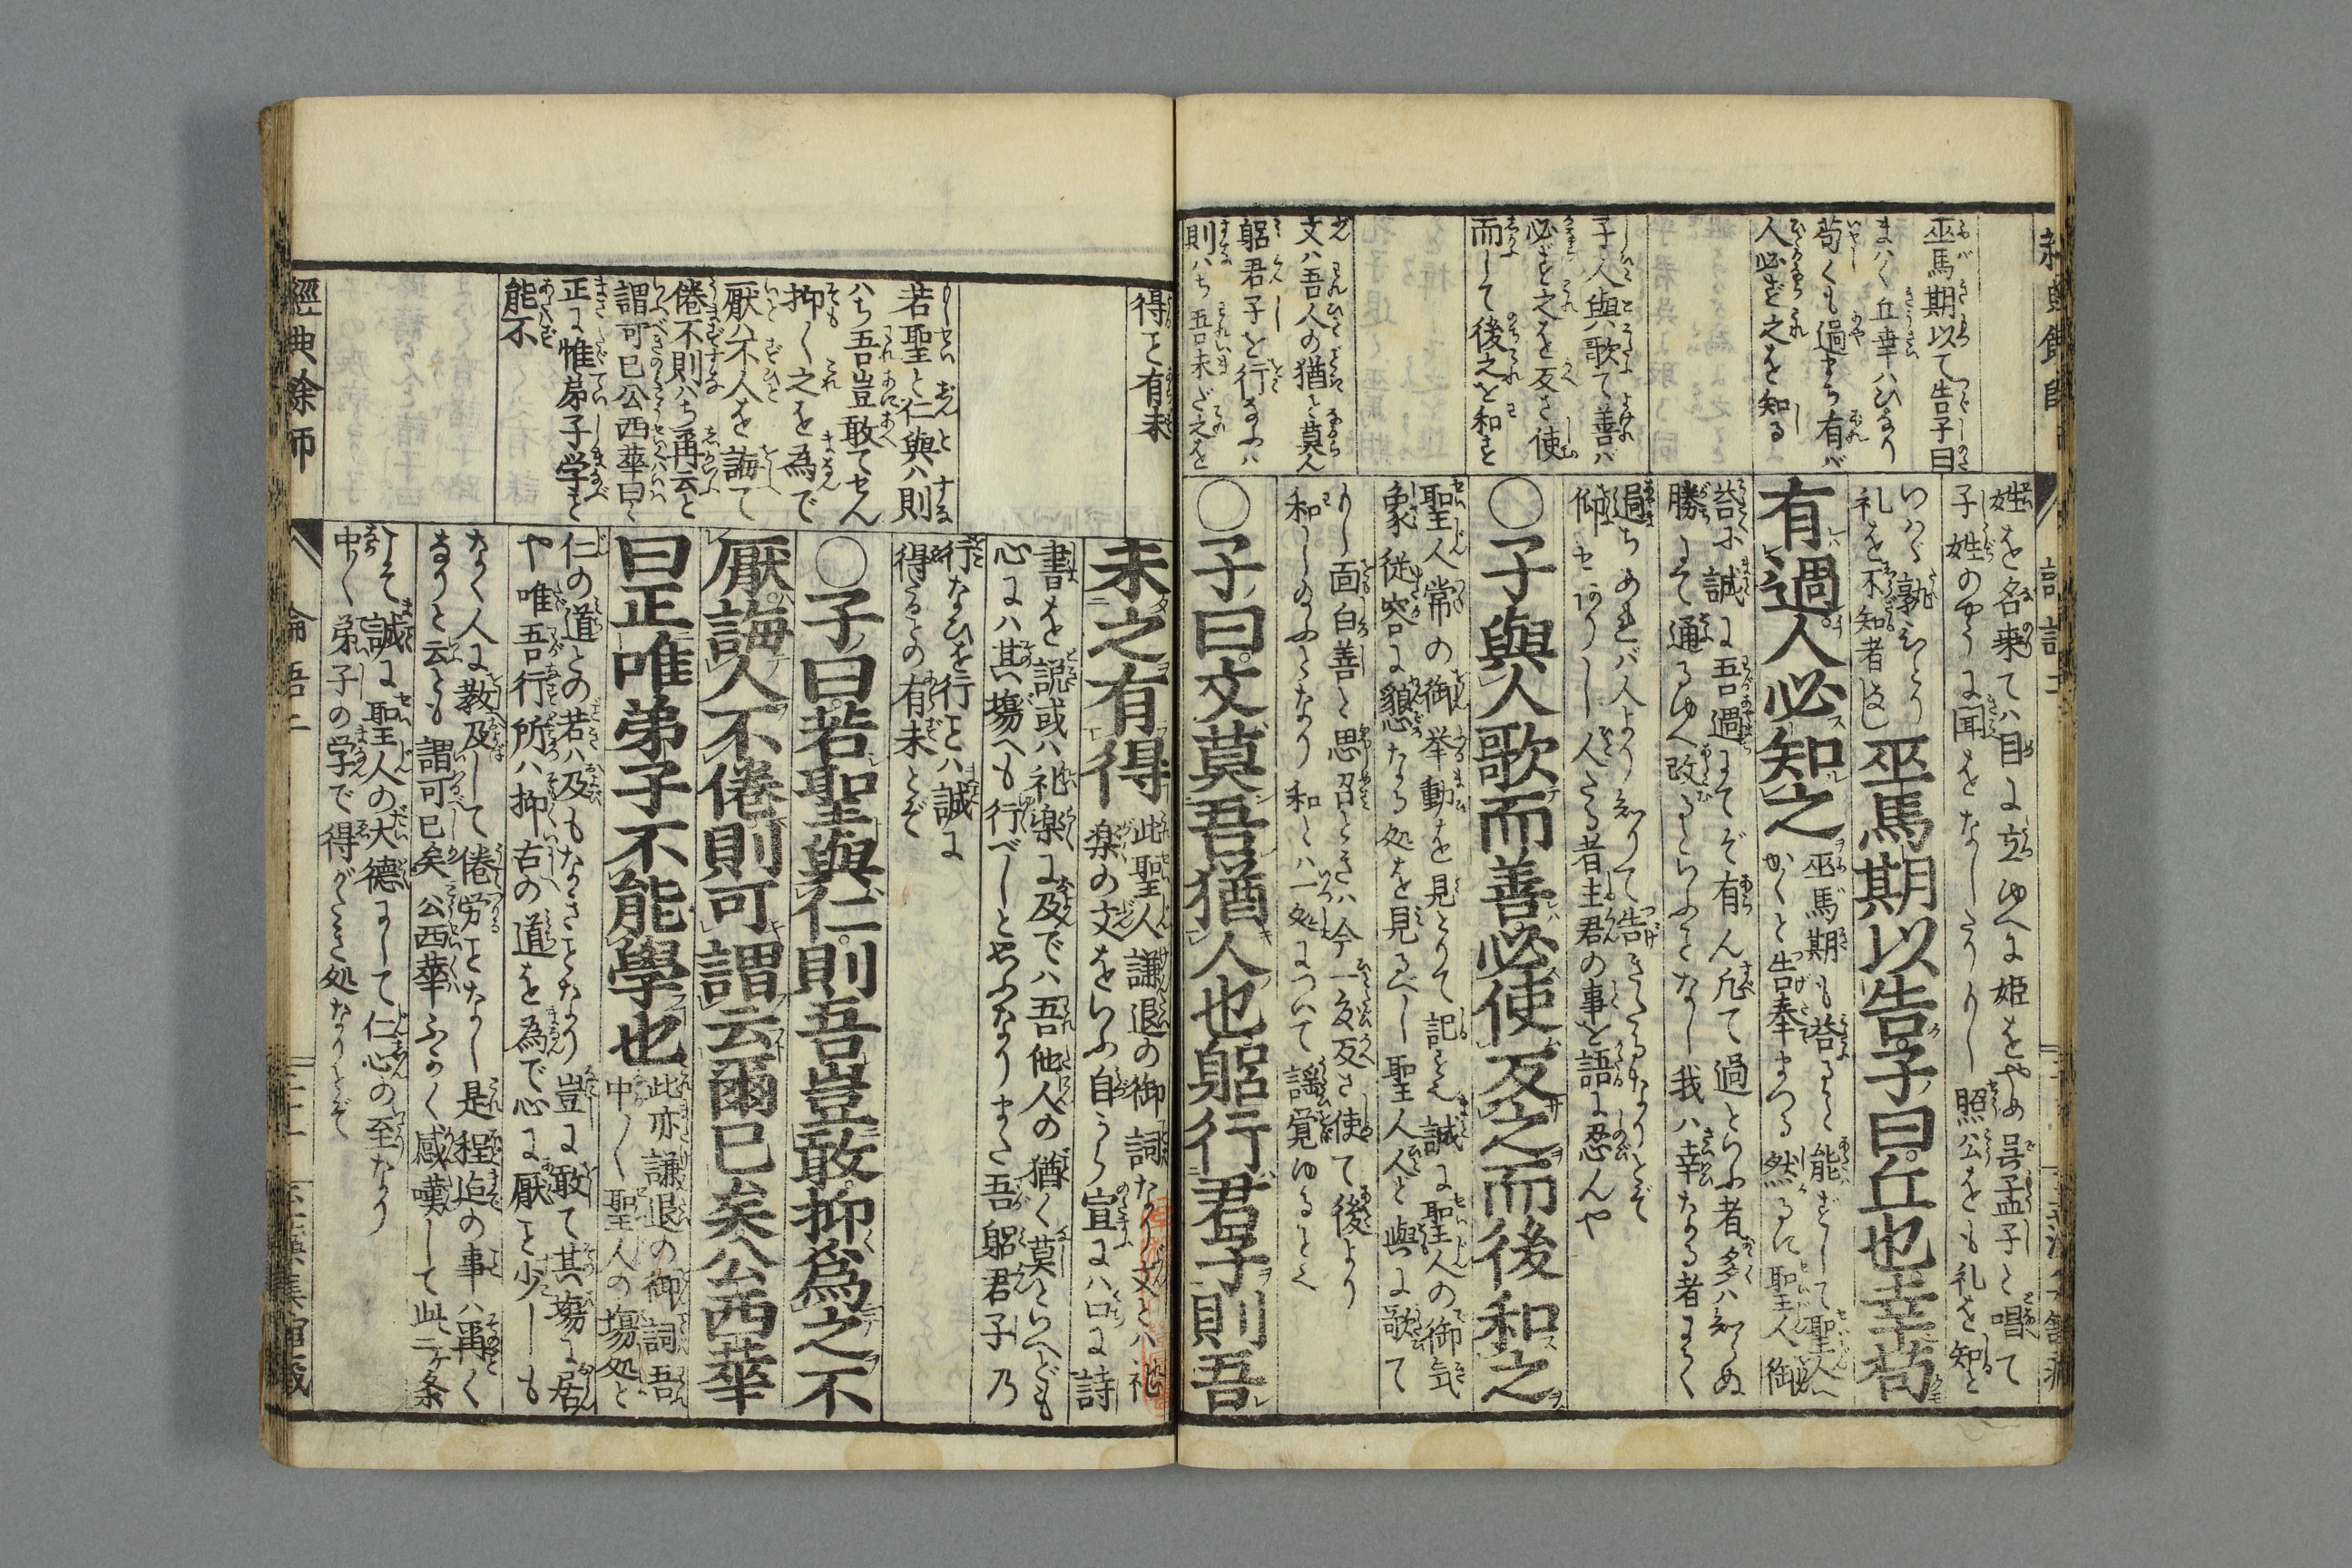 巫馬期以て告子曰
まハく丘幸ハひなり
苟くも過まち有バ
人必ず之を知る
子人與歌て善バ
必ず之を反さ使
而して後之を和を
文ハ吾人の猶と莫ん
躬君子を行なふハ
則ハち吾未だ之を
姓を名来てハ目に立ゆへに姫をやめ呉孟子と唱て
子姓のやうに聞をなしたりし照公をも礼を知と
いハゞ孰ひとり
礼を不知者はなし
巫馬期以告子曰丘也幸苟
有過人必知之
巫馬期も荅るに能ずして聖人へ
かくと告奉まつる然るに聖人御
荅に誠に吾過にてぞ有ん凡て過といふ者多ハ知らぬ
勝にて通るゆへ改るといふことなし我ハ幸なる者にて
過ちあれバ人より知りて告きたるなりとぞ
〇子與人歌而善必使反之而後和之
聖人常の御挙動を見とりて記るを誠に聖人の御気
象従容に懇なる処を見るべし聖人人と與に歌て
面白善と思召ときハ今一反反さ使て後より
和しのふとなり和とハ一処について謡覚ゆるとぞ
〇子曰文莫吾猶人也躬行君子則吾
得こと有未
若聖と仁與ハ則
ハち吾豈敢てせん
抑〱之を為で
厭ハ不人を誨て
倦不則ハち爾云と
謂可已公西華曰く
正に惟弟子学を
能不
未之有得
此聖人謙退の御詞なり文とハ礼
楽の文をいふ自から宣にハ口に詩
書を説或ハ礼楽に及でハ吾他人の猶く莫といへども
心にハ其塲へも行べしと云ふなりまた吾躬君子乃
行なひを行ことハ誠に
得るとの有未とぞ
〇子曰若聖與仁則吾豈敢抑爲之不
厭誨人不倦則可謂云爾已矣公西華
曰正唯弟子不能學也
此亦謙退の御詞吾
中〱聖人の塲処と
仁の道との若ハ及もなきことなり豈に敢て其塲に居
や唯吾行所ハ抑右の道を為で心に厭こと少しも
なく人に教及して倦労ことなし是程迠の事ハ爾く
なりと云とも謂可已矣公西華ふかく感嘆して此二ヶ条
誠に聖人の大德にして仁心の至なり
中〱弟子の学で得がたき処なりとぞ
經典餘師
論吾二